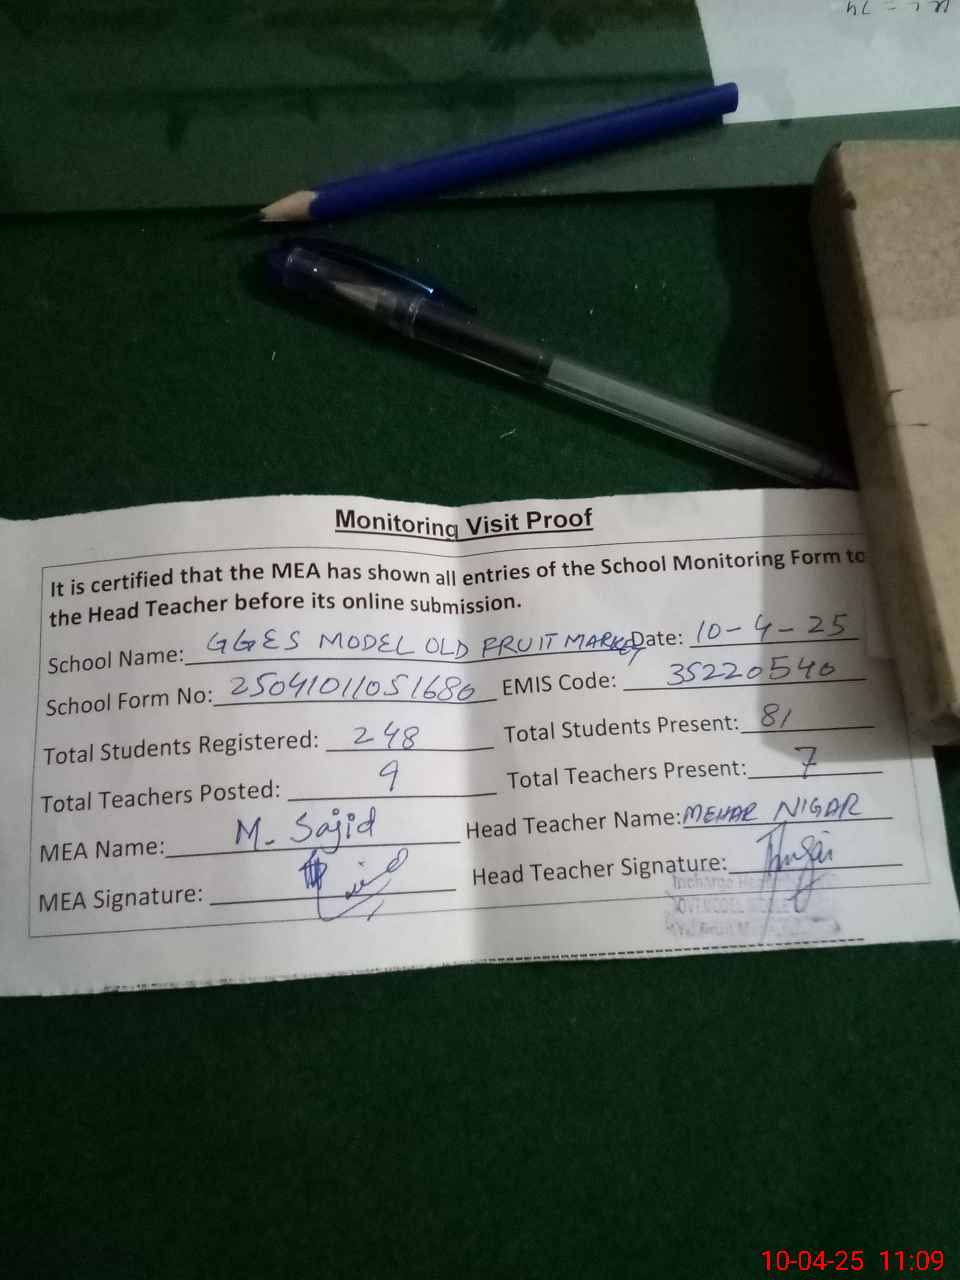 Monitoring Visit Proof
It is certified that the MEA has shown all entries of the School Monitoring Form to
the Head Teacher before its online submission.
School Name: GGES MODEL OLD FRUIT MARKET Date: 10-4-25
School Form No: 25041011051680 EMIS Code: 35220540
Total Students Registered: 248 Total Students Present: 81
Total Teachers Posted: 9 Total Teachers Present: 7
MEA Name: M. Sajid Head Teacher Name: MEHAR NIGAR
MEA Signature: Head Teacher Signature:
Incharge
MODEL
10-04-25 11:09